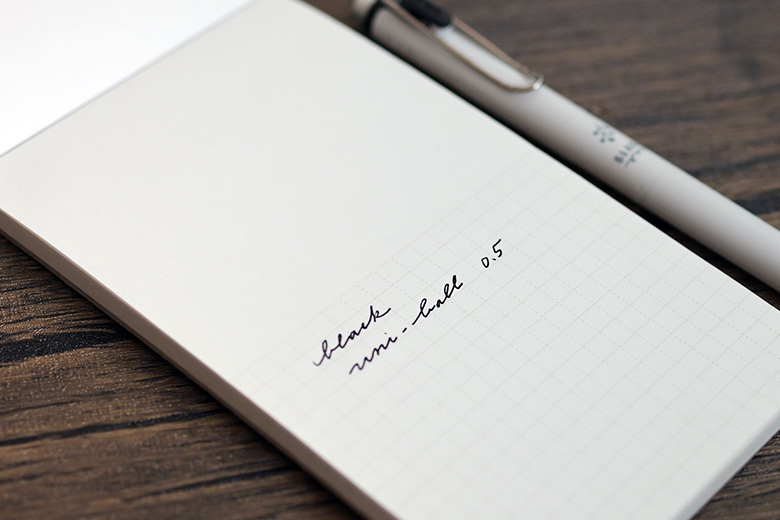 black
uni-ball 0.5